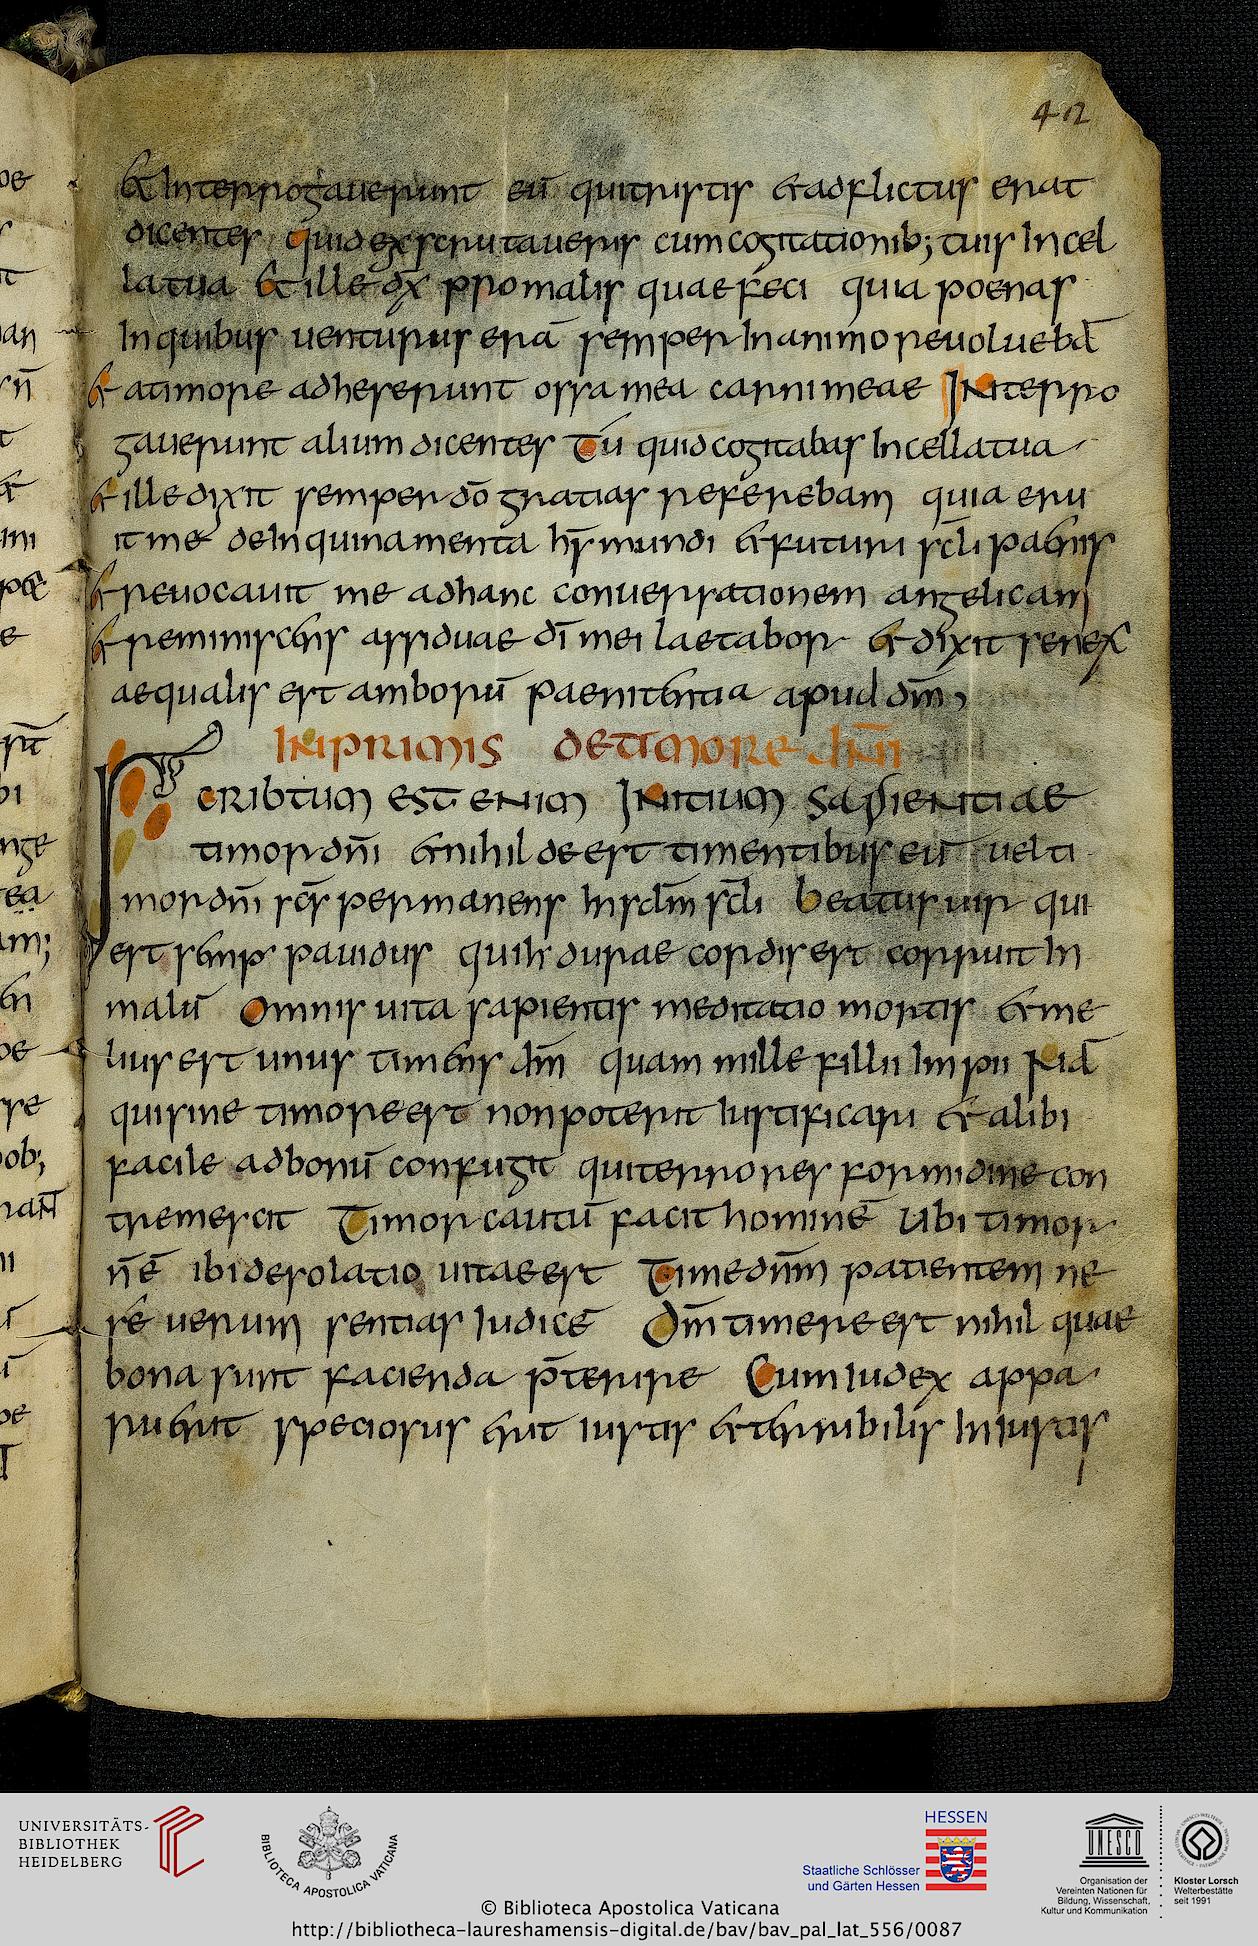 42
& Interrogauerunt eū qui tristis & adflictus erat
dicentes quid exscrutaueris cum cogitationib; tuis In cel
la tua & ille dx̄ pro malis quae feci quia poenas
In quibus uenturus erā semper In animo reuoluebā
& a timore adheserunt ossa mea carni meae Interro
gauerunt alium dicentes Tu quid cogitabas In cella tua
& ille dixit semper dō gratias referebam quia eru
it me de Inquinamenta hs̄ mundi & futuri scl̄i paenis
& reuocauit me ad hanc conuersationem angelicam
& reminiscens assiduae dī mei laetabor & dixit senex
aequalis est amborū paenitentia apud dm̄,
Inprimis de timore dn̄i
Scribtum est enim Initium sapientiae
timor dn̄i & nihil deest timentibus eū uel ti
mor dn̄i scs̄ permanens In scl̄m scl̄i beatus uir qui
est semp pauidus qui ū durae cordis est corruit In
malū Omnis uita sapientis meditatio mortis & me
lius est unus timens dm̄ quam mille filii Impii Nā
qui sine timore est non poterit Iustificari & alibi
facile ad bonū confugit qui terrores formidine con
tremescit Timor cautū facit hominē Ubi timor
n̄ ē ibi desolatio uitae est Time dn̄m patientem ne
seuerum sentias Iudicē Dm̄ timere est nihil quae
bona sunt facienda p̄terire Cum Iudex appa
ruerit speciosus erit iustis & terribilis Iniustis
UNIVERSITÄTS-
BIBLIOTHEK
HEIDELBERG
BIBLIOTECA APOSTOLICA VATICANA
HESSEN
Staatliche Schlösser
und Gärten Hessen
UNESCO
Organisation der
Vereinten Nationen für
Bildung, Wissenschaft,
Kultur und Kommunikation
Kloster Lorsch
Welterbestätte
seit 1991
© Biblioteca Apostolica Vaticana
http://bibliotheca-laureshamensis-digital.de/bav/bav_pal_lat_556/0087